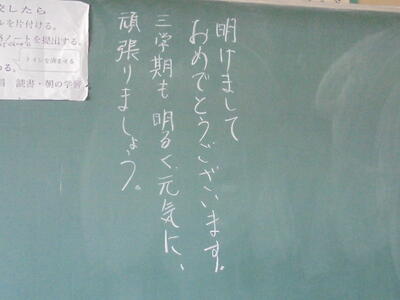 明けまして
おめでとうございます。
三学期も明るく元気に、
頑張りましょう。
したら
ルを片付ける。
ノートを提出する。
トイレを済ませる
る。
読書・朝の学習